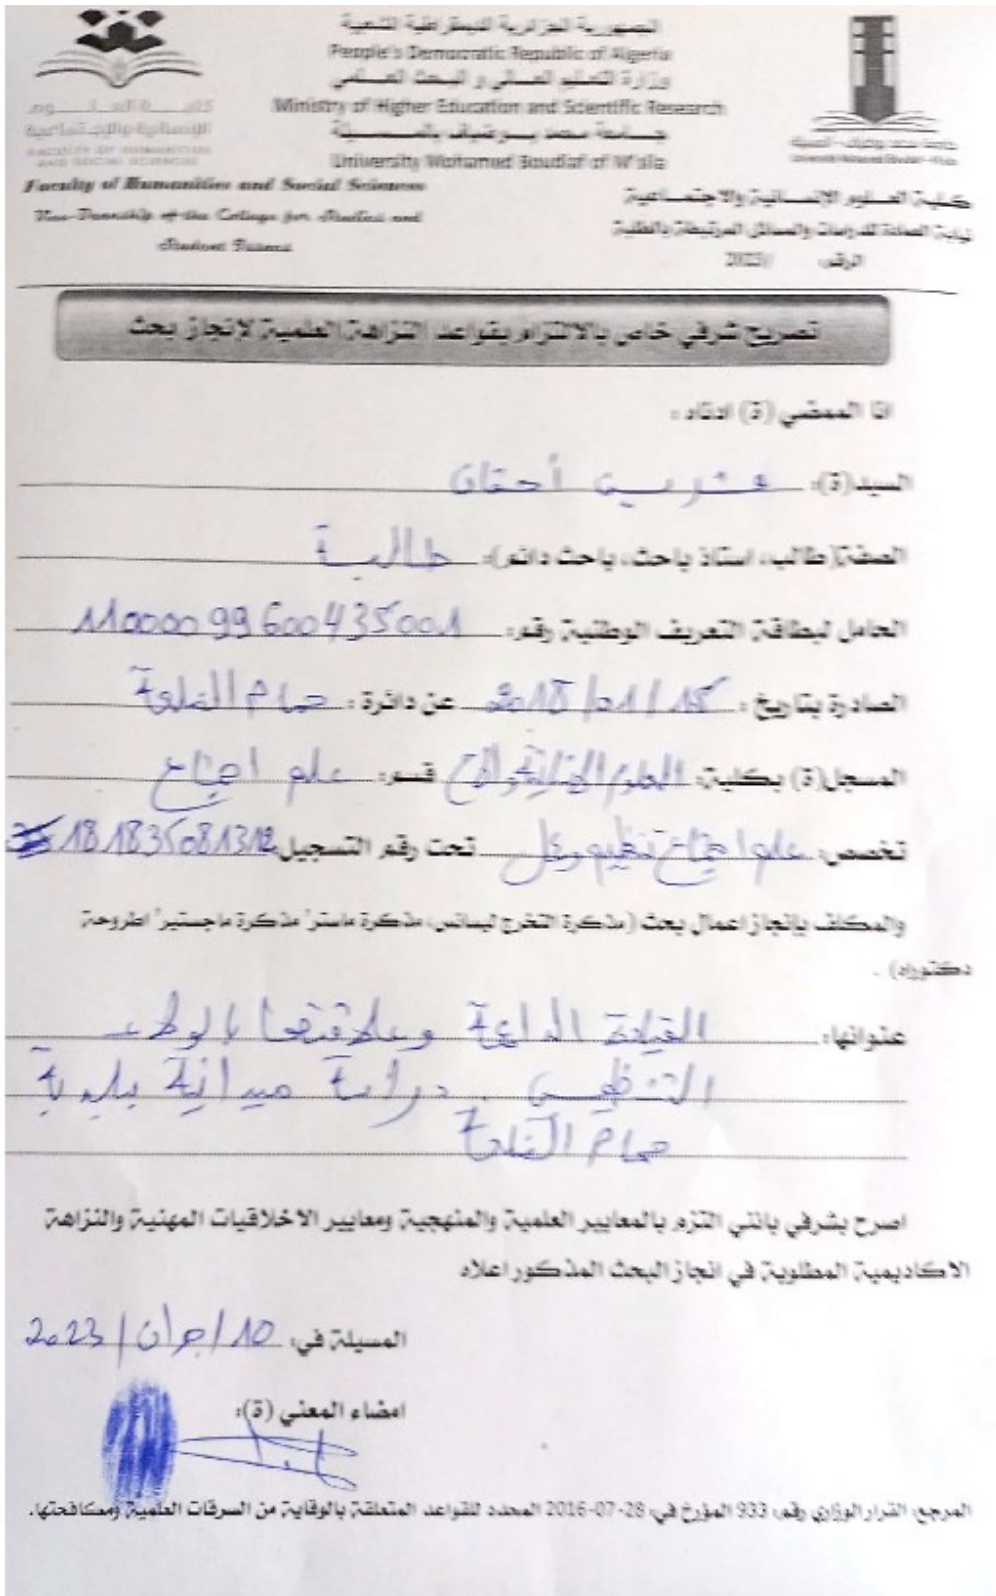 الجمهورية الجزائرية الديمقراطية الشعبية
People's Democratic Republic of Algeria
وزارة التعليم العالي و البحث العلمي
Ministry of Higher Education and Scientific Research
جامعة محمد بوضياف بالمسيلة
University Mohamed Boudiaf of M'sila
كلية العلوم
الإنسانية والاجتماعية
FACULTY OF HUMANITIES
AND SOCIAL SCIENCES
جامعة محمد بوضياف - المسيلة
Faculty of Humanities and Social Sciences
Vice-Deanship of the College for Studies and
Student Issues
كلية العلوم الإنسانية والاجتماعية
نيابة العمادة للدراسات والمسائل المرتبطة بالطلبة
الرقم: /2023
تصريح شرفي خاص بالالتزام بقواعد النزاهة العلمية لإنجاز بحث
انا الممضي (ة) ادناه :
السيد(ة):
الصفة(طالب، استاذ باحث، باحث دائم): طالبة
الحامل لبطاقة التعريف الوطنية رقم: 11000099600435001
الصادرة بتاريخ : 2018/01/15 عن دائرة : حمام الضلعة
المسجل(ة) بكلية: العلوم الإنسانية قسم: علم اجتماع
تخصص: علم اجتماع تنظيم وعمل تحت رقم التسجيل: 181835081312
والمكلف بإنجاز اعمال بحث (مذكرة التخرج ليسانس، مذكرة ماستر، مذكرة ماجستير، اطروحة
دكتوراه) .
عنوانها: القيادة الداعمة وعلاقتها بالولاء
التنظيمي دراسة ميدانية ببلدية
حمام الضلعة
اصرح بشرفي بانني التزم بالمعايير العلمية والمنهجية ومعايير الاخلاقيات المهنية والنزاهة
الاكاديمية المطلوبة في انجاز البحث المذكور اعلاه
المسيلة في: 10/جوان/2023
امضاء المعني (ة):
المرجع: القرار الوزاري رقم: 933 المؤرخ في: 28-07-2016 المحدد للقواعد المتعلقة بالوقاية من السرقات العلمية ومكافحتها.